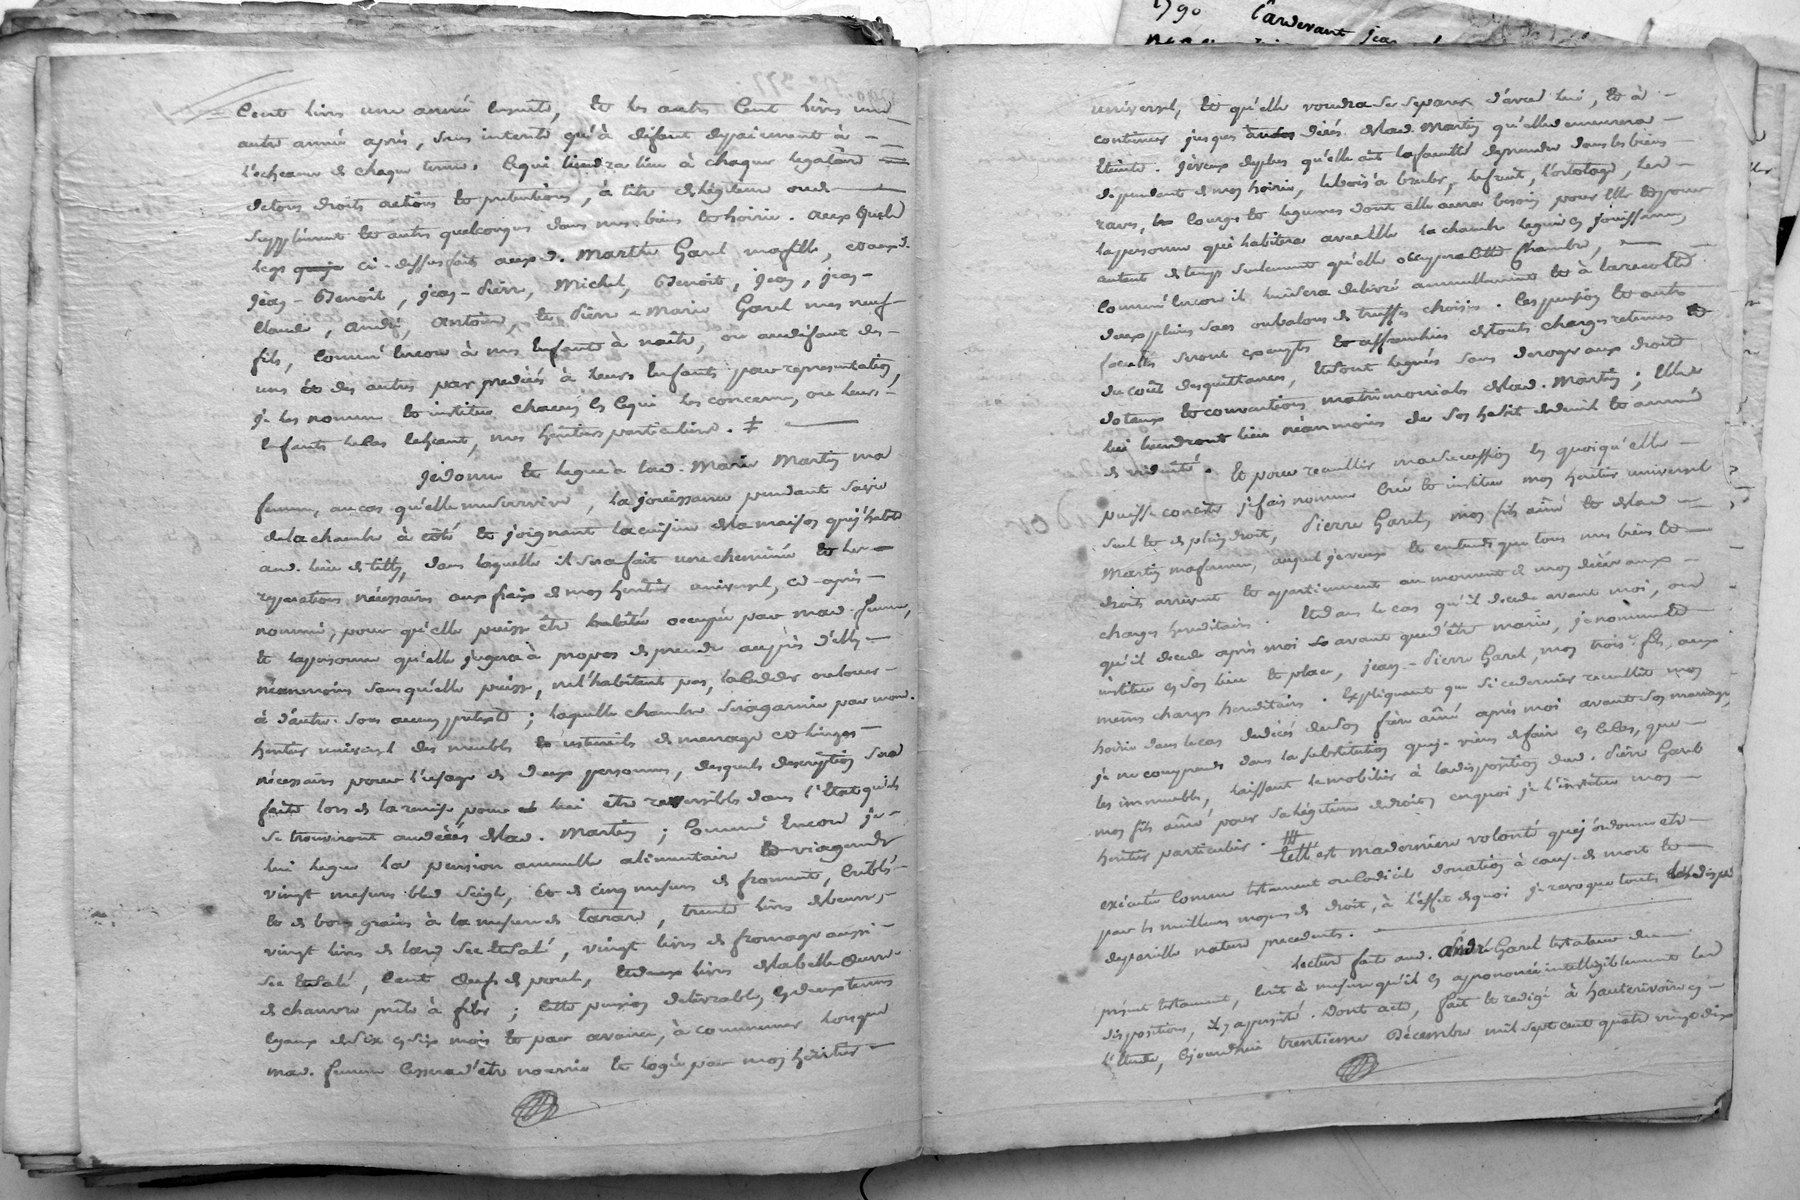 1790 Cardevant jean
Cent livres une année ensuite, et les autres Cent livres une
autre année après, sans interets qu'à défaut depaiement à
l'echeance de chaque terme. Cequi tiendra lieu à chaque legataire
detous droits actions et pretentions, à titre delégitime oude
supplément et autres quelconques dans mes biens et hoirie. auxquels
legs ci-dessus fait aux d. Marthe Garel mafille, etaux d.
jean-Benoit, jean-Pierre, Michel, Benoit, jean, jean-
Claude, André, Antoine, et Pierre-Marie Garel mes neuf
fils, Comm'encore à mes Enfants à naitre, ou audéfaut des
uns et des autres par prédécés à leurs Enfants par représentation,
je les nomme et institue chacun en cequi les concerne, ou leurs
Enfants lecas échéant, mes héritiers particuliers. ‡
jedonne et legue à lad. Marie Martin ma
femme, aucas qu'elle mesurvive, la jouissance pendant savie
delachambre à côté et joignant lacuisine delamaison quej'habite
aud. lieu de tilly, dans laquelle il serafait une cheminée et les
reparations nécessaires aux fraix de mon heritier universel, ci-après
nommé, pour qu'elle puisse être habitée occupée par mad. femme,
et lapersonne qu'elle jugera à propos de prendre auprès d'elle
néanmoins sansqu'elle puisse, nel'habitant pas, lacéder oulouer
à d'autre sous aucun prétexte; laquelle chambre seragarnie par mond.
heritier universel des meubles et ustensiles de menage et linges
nécessaires pour l'usage de deux personnes, desquels description sera
faite lors de laremise pour lui être reversibles dans l'Etat qu'ils
se trouveront audécés delad. Martin; Comme Encore je
lui legue la pension annuelle alimentaire et viagere de
vingt mesures bled seigle, et de cinq mesures de froment, criblés
et de bons grains à la mesure de tarare, trente livres debeurre,
vingt livres de lard sec etsalé, vingt livres de fromage aussi
sec etsalé, Cent œufs de poule, etdeux livres delabelle œuvre
de chanvre prête à filer; cette pension delivrable, en deux termes
egaux desix en six mois et par avance, à commencer lorsque
mad. femme cessera d'être nourrie et logée par mon héritier
universel, et qu'elle voudra se séparer d'avec lui, et à
continuer jusques audécés delad. Martin qu'elle demeurera
Eteinte. jeveux deplus qu'elle ait lafaculté deprendre dans les biens
dependant de mon hoirie, lebois à bruler, lefruit, l'ortolage, les
raves, les courges et legumes dont elle aura besoin pour elle etpour
lapersonne qui habitera avec elle la chambre leguée en jouissance,
autant de temps seulement qu'elle occupera cette chambre,
Comm'encore il luisera delivré annuellement et à larecolte
deux pleins sacs oubalons de truffes choisies. Ces pension et autres
facultés seront exempts et affranchies detoutes charges retenues et
du coût desquittances, etsont legués sans deroger aux droits
dotaux et conventions matrimoniales delad. Martin; Elles
lui tiendront lieu néanmoins de son habit dedeuil et année
de viduité. Et pour recueillir masuccession en quoiqu'elle
puisse consister jefais nomme Crée et institue mon héritier universel
seul et de plein droit, Pierre Garel, mon fils ainé et delad.
Martin mafemme, auquel jeveux et entends que tous mes biens et
droits arrivent et appartiennent au moment de mon décès aux
charges hereditaires. Etdans le cas qu'il decede avant moi, ou
qu'il decede après moi et avant qued'être marié, je nomme et
institue en son lieu et place, jean-Pierre Garel, mon trois.e fils, aux
mêmes charges hereditaires. Expliquant que si cedernier recueillit mon
hoirie dans lecas dudécés deson frère ainé après moi avant son mariage,
je ne comprends dans la substitution queje viens defaire en ce cas, que
les immeubles, laissant le mobilier à ladisposition dud. Pierre Garel
mon fils ainé pour salégitime dedroit, enquoi je l'institue mon
heritier particulier. Telle est maderniere volonté quej'ordonne etre
exécutée Comme testament oucodicile donation à cause de mort et
par les meilleurs moyens de droit, à l'effet dequoi jerevoque toutes
depareille nature precedents.
Lecture faite aud. André Garel testateur du
présent testament, écrit à mesure qu'il en a prononcé intelligiblement les
dispositions, il y a persisté. Dont acte, fait et redigé à hauterivoire en
l'Etude, Cejourd'hui trentieme Décembre mil sept cent quatre vingt dix